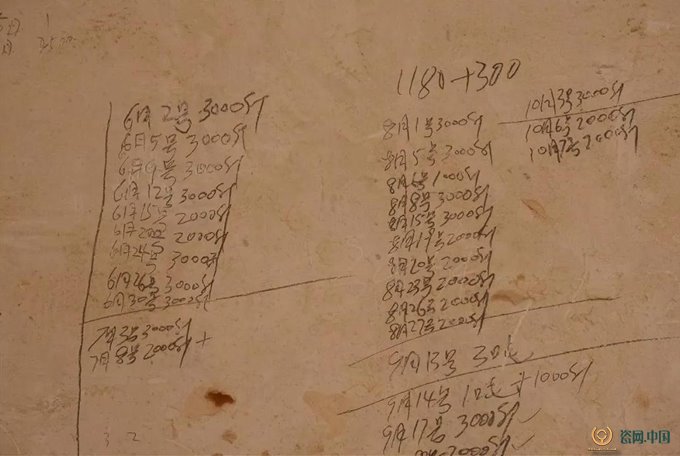 6月2号3000斤
6月5号3000斤
6月9号3000斤
6月12号3000斤
6月15号2000斤
6月20号2000斤
6月24号3000斤
6月26号3000斤
6月30号3000斤
7月3号3000斤
7月8号2000斤+
1180+300
8月1号3000斤
8月5号3000斤
8月6号1000斤
8月8号3000斤
8月15号3000斤
8月17号2000斤
8月20号2000斤
8月23号2000斤
8月26号2000斤
8月27号2000斤
9月13号 3吨
9月14号 1吨+1000斤
9月17号 3000斤
2000斤
10月3号3000斤
10月6号2000斤
10月7号2000斤
瓷网.中国